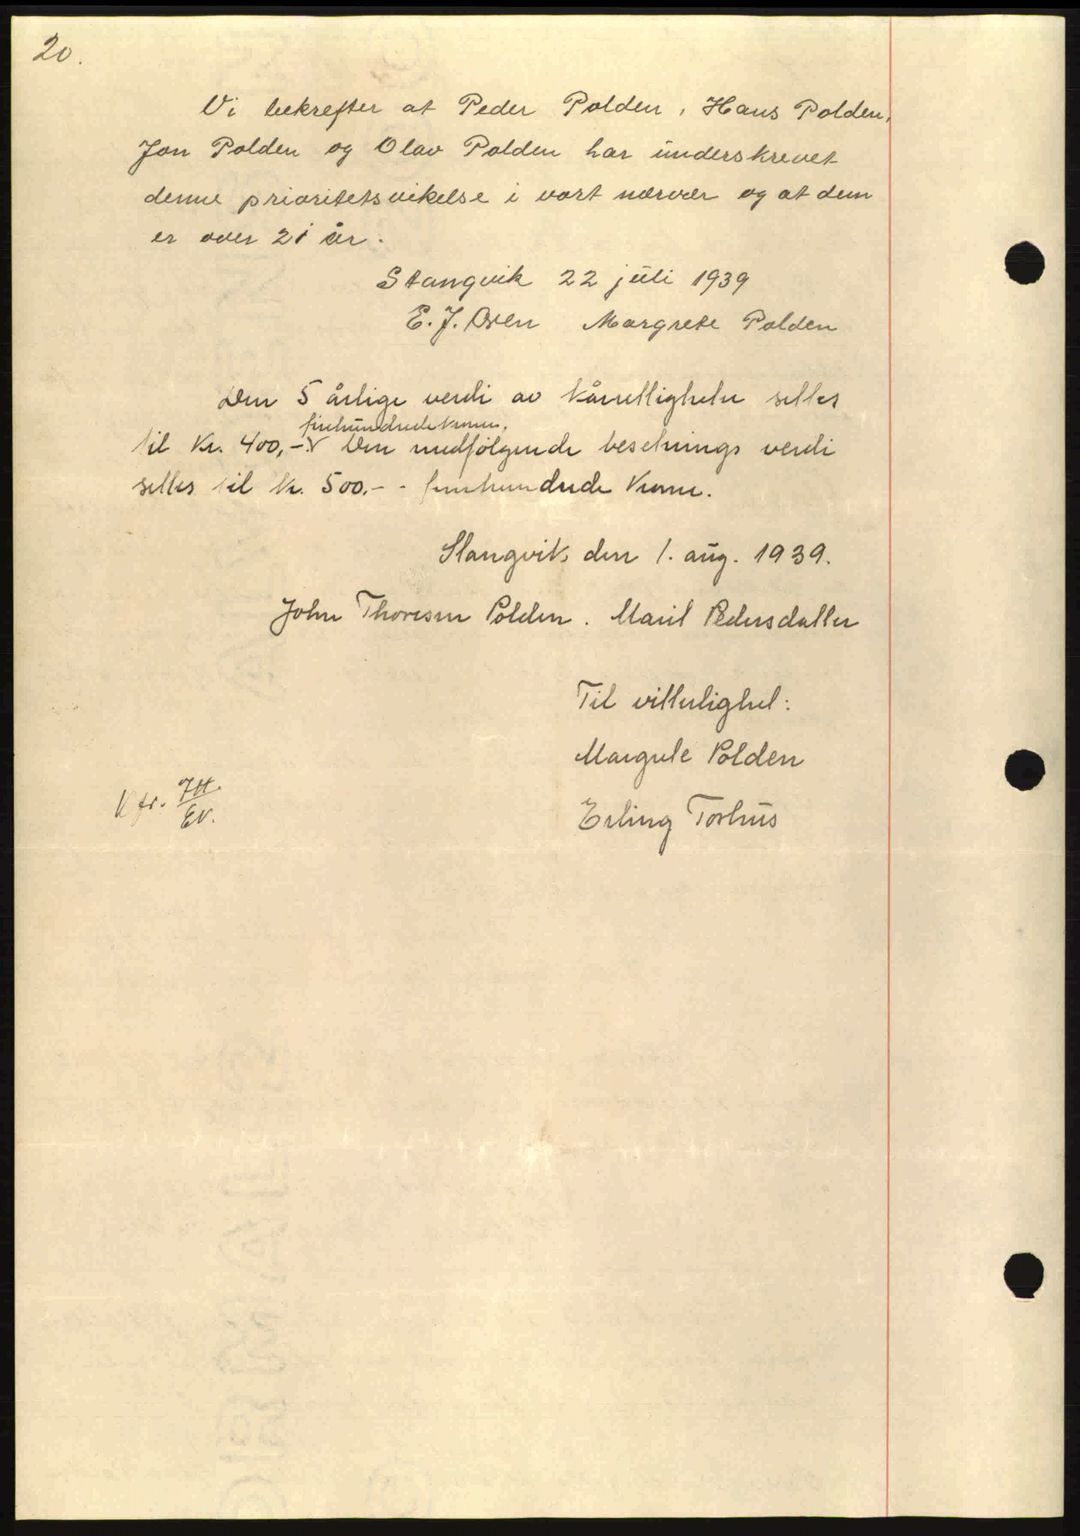 20.
Vi bekrefter at Peder Polden, Hans Polden,
Jon Polden og Olav Polden har underskrevet
denne prioritetsvikelse i vort nærvær og at dem
er over 21 år.
Stangvik 22 juli 1939
E. J. Oxen Margrete Polden
Den 5 årlige verdi av kårrettigheter settes
firehundrede kroner.
til kr. 400,- Den medfølgende besetnings verdi
settes til kr. 500,- - femhundrede kroner.
Stangvik, den 1. aug. 1939.
John Thoresen Polden. Marit Pedersdatter
Til vitterlighet:
Margrete Polden
Erling Torhus
Kfr.